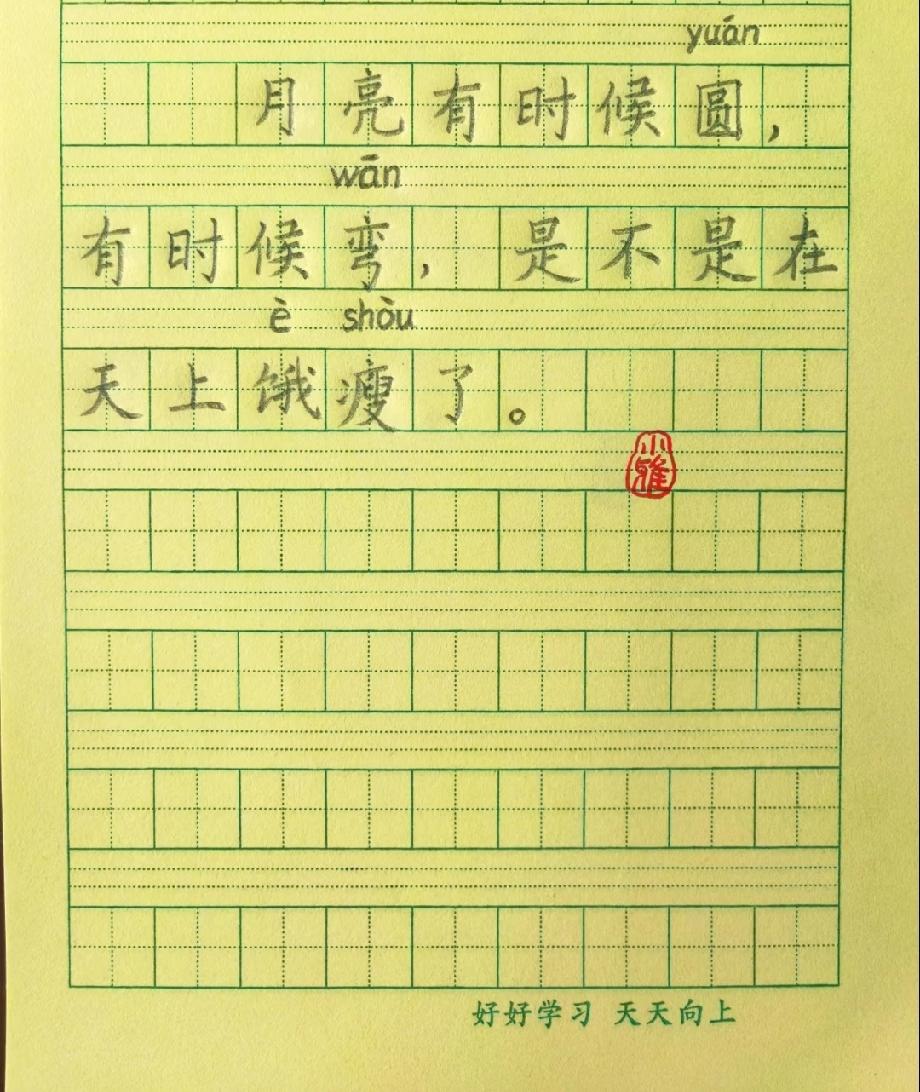 yuán
月亮有时候圆，
wān
有时候弯，是不是在
è shòu
天上饿瘦了。
小雅
好好学习 天天向上